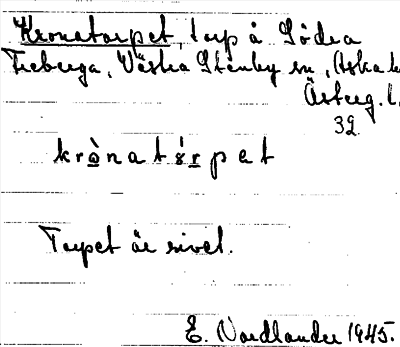 Kronatorpet, torp å Södra
Freberga, Västra Stenby sn, Aska h
Österg. l.
32
krònatórpet
Torpet är rivet.
E. Nordlander 1945.